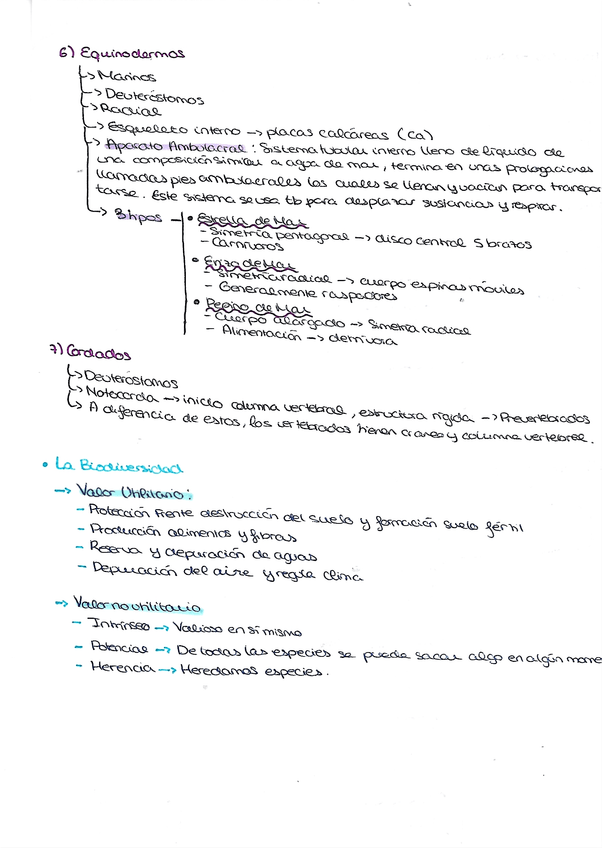 6) Equinodermos
→ Marinos
→ Deuteróstomos
→ Radial
→ Esqueleto interno → placas calcáreas (Ca)
→ Aparato Ambulacral : Sistema tubular interno lleno de líquido de
una composición similar a agua de mar, termina en unas prologaciones
llamadas pies ambulacrales los cuales se llenan y vacían para transpor
tarse. Este sistema se usa tb para desplazar sustancias y respirar.
→ 3 tipos
• Estrella de Mar
- Simetría pentagonal → disco central 5 brazos
- Carnívoros
• Erizo de Mar
- Simetría radial → cuerpo espinas móviles
- Generalmente raspadores
• Pepino de Mar
- Cuerpo alargado → Simetría radial
- Alimentación →
7) Cordados
→ Deuteróstomos
→ Notocorda → inicio columna vertebral, estructura rígida → Prevertebrados
→ A diferencia de estos, los vertebrados tienen craneo y columna vertebral.
• La Biodiversidad
→ Valor Utilitario:
- Protección frente destrucción del suelo y formación suelo fértil
- Producción alimentos y fibras
- Reserva y depuración de aguas
- Depuración del aire y regla clima
→ Valor no utilitario
- Intrínseo → Valioso en sí mismo
- Potencial → De todas las especies se puede sacar algo en algún mome
- Herencia → Heredamos especies.